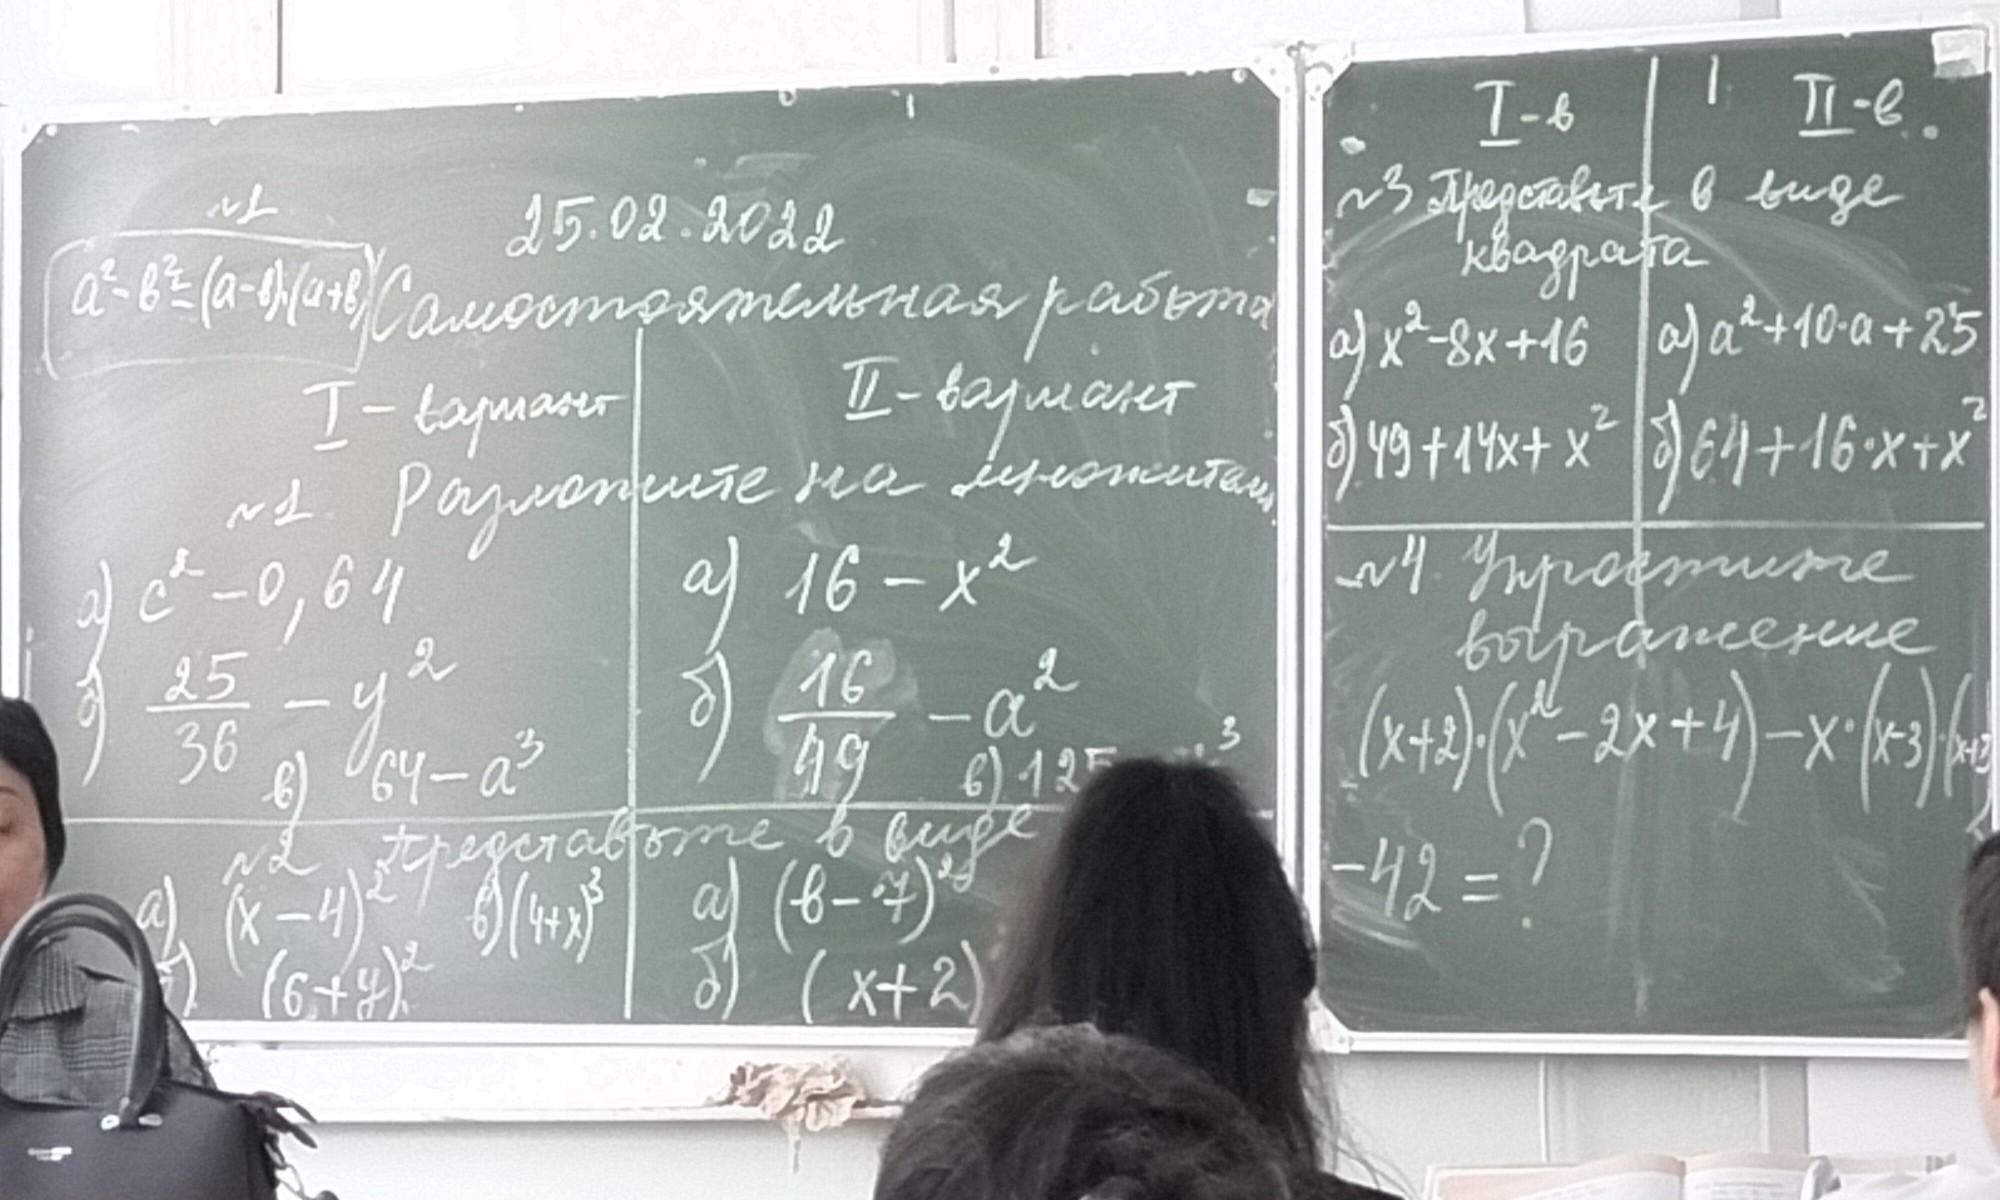 №1
a² - в² = (a-в)·(a+в)
25.02.2022
Самостоятельная работа
I - вариант
II - вариант
№1. Разложите на множители
а) c² - 0,64
а) 16 - x²
б) 25/36 - y²
б) 16/49 - a²
в) 64 - a³
в) 125
№2 Представьте в виде
а) (x - 4)²
в) (4+x)³
а) (в - 7)²
(6+y)²
б) (x+2)
I - в
II - в.
№3 Представьте в виде
квадрата
а) x² - 8x + 16
а) a² + 10·a + 25
б) 49 + 14x + x²
б) 64 + 16·x + x²
№4. Упростите
выражение
(x+2)·(x² - 2x + 4) - x·(x-3)·(x+3)
- 42 = ?